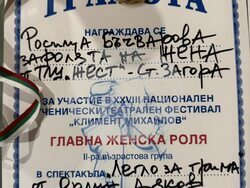 ГРАМОТА
НАГРАЖДАВА СЕ
Росица Бъчварова
за ролята на ЖЕНА
от ТМ „Жест" - Ст. Загора
ЗА УЧАСТИЕ В XXVIII НАЦИОНАЛЕН
УЧЕНИЧЕСКИ ТЕАТРАЛЕН ФЕСТИВАЛ
"КЛИМЕНТ МИХАЙЛОВ"
ГЛАВНА ЖЕНСКА РОЛЯ
II-ра възрастова група
В СПЕКТАКЪЛА „Легло за трима"
от